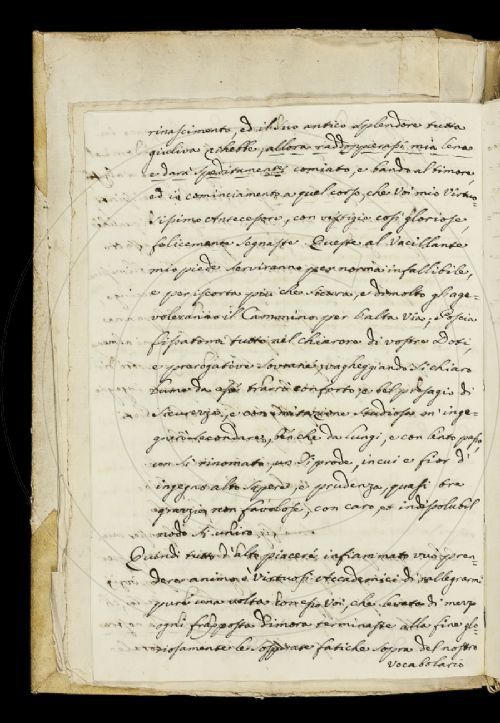 rinascimento, ed il suo antico splendore tutta
giuliva allora raddoppierassi mia lena
e darà speditamente comiato, e bando al timore,
ed in cominciamento a quel corso, che Voi mio Virtuo-
sissimo Antecessore, con vestigie così gloriose,
felicemente segnaste. Queste al vacillante
mio piede serviranno per norma infallibile,
e per iscorta più che sicura, e di molto gl'age-
voleranno il Cammino per l'alta Via; e Poscia
fissatomi tutto nel chiarore di vostre Doti,
e prerogative Sovrane, vagheggiando sì chiaro
da esse trarrò conforto, e bel presagio di
Sicurezza, e con imitazione studiosa m'inge-
gnerò secondare, benchè da lungi, e con lento passo,
un sì rinomato, un sì prode, in cui e fior d'
ingegno, alto sapere, e prudenza, quasi tra
grazie non favolose, con caro, et indissolubil
nodo si unirò.
Quindi tutto d'alto piacere infiammato vuò pren-
dere animo è Virtuosi Accademici di rallegrarmi
pure una volta con esso Voi, che levata di mezzo
ogni frapposta dimora terminaste alla fine glo-
riosamente le fatiche sopra del nostro
Vocabolario